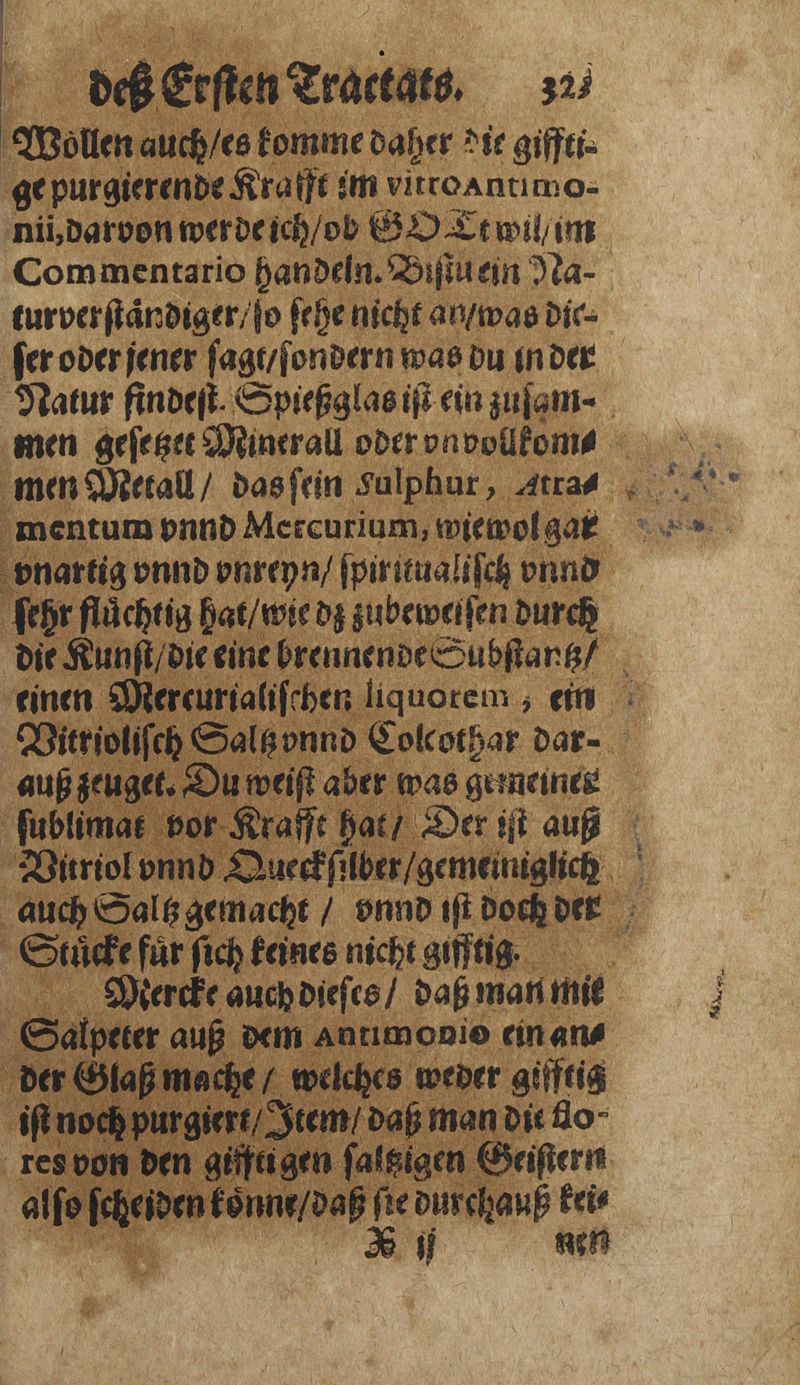 deß Ersten Tractats. 323
Wöllen auch/es komme daher die giffti-
ge purgierende Krafft im vitro Antimo-
nii, darvon werde ich/ob GOTt wil/im
Commentario handeln. Bistu ein Na-
turverständiger/so sehe nicht an/was die-
ser oder jener sagt/sondern was du in der
Natur findest. Spießglas ist ein zusam-
men gesetzet Minerall oder vnvollkom-
men Metall/ das sein Sulphur, Atra-
mentum vnnd Mercurium, wiewol gar
vnartig vnnd vnreyn/ spiritualisch vnnd
sehr flüchtig hat/wie dz zubeweisen durch
die Kunst/die eine brennende Substantz/
einen Mercurialischen liquorem, ein
Vitriolisch Saltz vnnd Colcothar dar-
auß zeuget. Du weist aber was gemeines
sublimat vor Krafft hat/ Der ist auß
Vitriol vnnd Quecksilber/gemeiniglich
auch Saltz gemacht / vnnd ist doch der
Stücke für sich keines nicht gifftig.
Mercke auch dieses/ daß man mit
Salpeter auß dem Antimonio ein an-
der Glaß mache/ welches weder gifftig
ist noch purgiert/Item/daß man die flo-
res von den gifftigen saltzigen Geistern
also scheiden könne/daß sie durchauß kei-
X ij nen